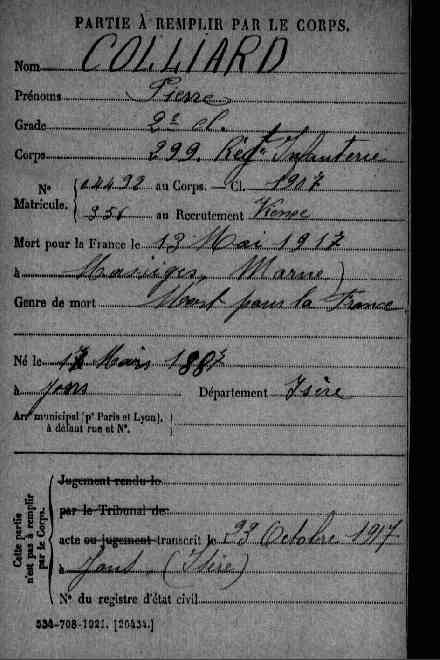 PARTIE À REMPLIR PAR LE CORPS.
Nom COLLIARD
Prénoms Pierre
Grade 2e cl.
Corps 299. Régt Infanterie
Nº Matricule. 04492 au Corps. — Cl. 1907
356 au Recrutement Vienne
Mort pour la France le 13 Mai 1917
à Massiges, Marne)
Genre de mort Mort pour la France
Né le 17 Mars 1887
à Jons Département Isère
Arr municipal (pr Paris et Lyon),
à défaut rue et Nº.
Cette partie n'est pas à remplir par le Corps.
Jugement rendu le
par le Tribunal de
acte ou jugement transcrit le 23 Octobre 1917
à Jons (Isère)
Nº du registre d'état civil
534-708-1921. [26434.]